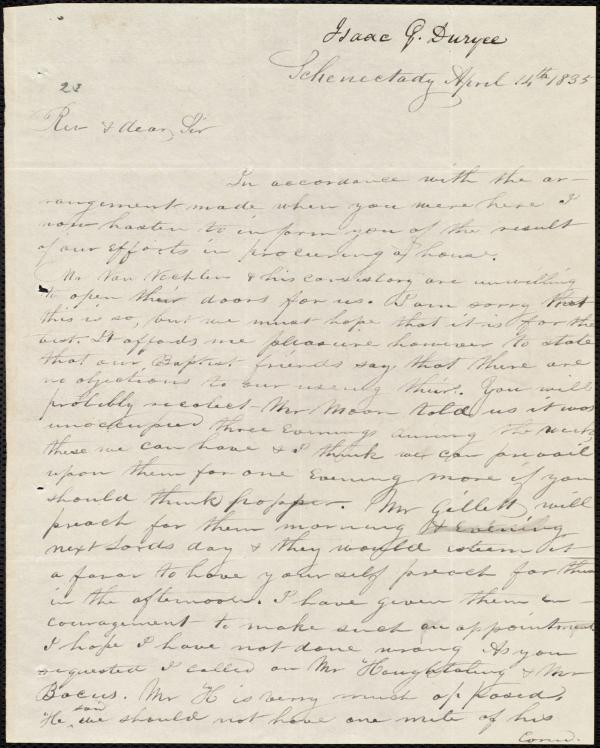 Isaac G. Duryee
Schenectady April 14th 1835
23
Rev & dear Sir
In accordance with the ar-
rangement made when you were here I
now hasten to inform you of the result
of our Efforts in procuring a house.
Mr Van Vechten & his consistory are unwilling
to open their doors for us. I am sorry that
this is so, but we must hope that it is for the
best. It affords me pleasure however to state
that our Baptist friends say that there are
no objections to our useing their. You will
probibly recolect Mr Moon told us it was
unoccupied three Evenings during the week,
these we can have & I think we can prevail
upon them for one Evening more if you
should think propper. Mr Gillett will
preach for them morning & Evening
next Lords day & they would esteem it
a favor to have yourself preach for them
in the afternoon. I have given them en-
couragement to make such an appointment
I hope I have not done wrong As you
requested I called on Mr Houghtaling & Mr
Bacus. Mr H is verry much opposed,
He said we should not have one mite of his
Conn.